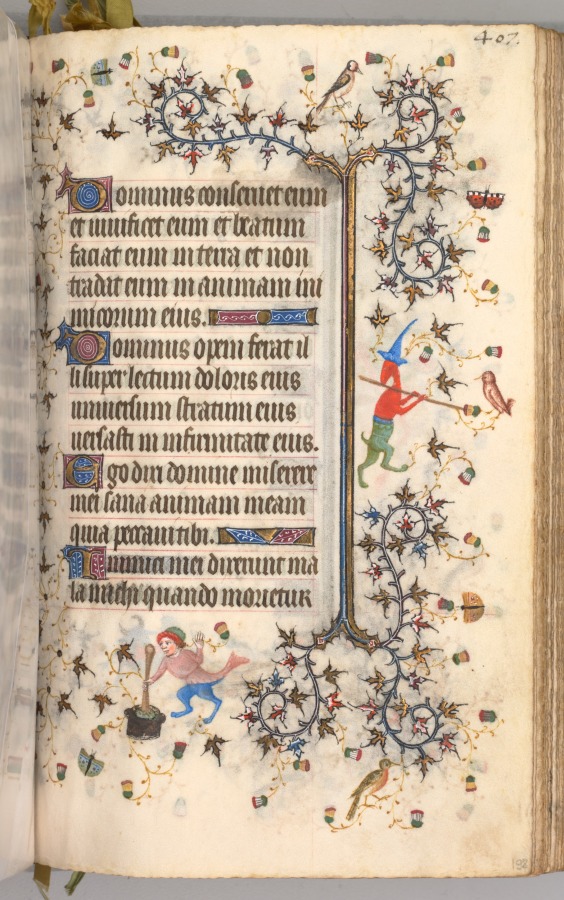 407.
Dominus conseruet eum
et uiuificet eum et beatum
faciat eum in terra et non
tradat eum in animam ini
micorum eius.
Dominus opem ferat il
li super lectum doloris eius
uniuersum stratum eius
uersasti in infirmitate eius.
Ego dixi domine miserere
mei sana animam meam
quia peccaui tibi.
Inimici mei dixerunt ma
la michi quando morietur